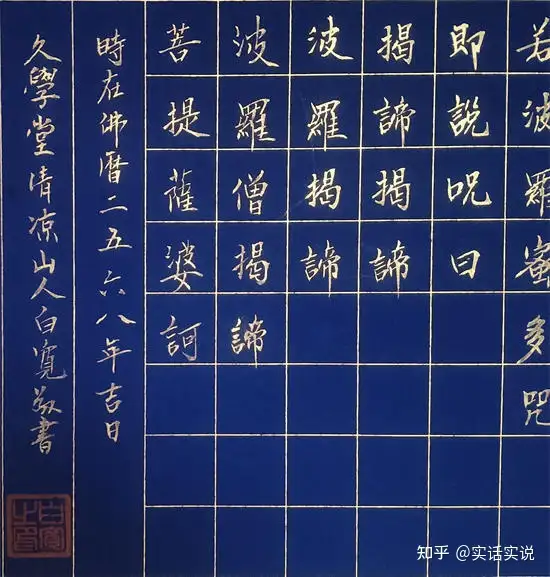 若波羅蜜多咒
即說呪曰
揭諦揭諦
波羅揭諦
波羅僧揭諦
菩提薩婆訶
時在佛曆二五六八年吉日
久學堂清凉山人白寬敬書
白寬之印
知乎 @实话实说